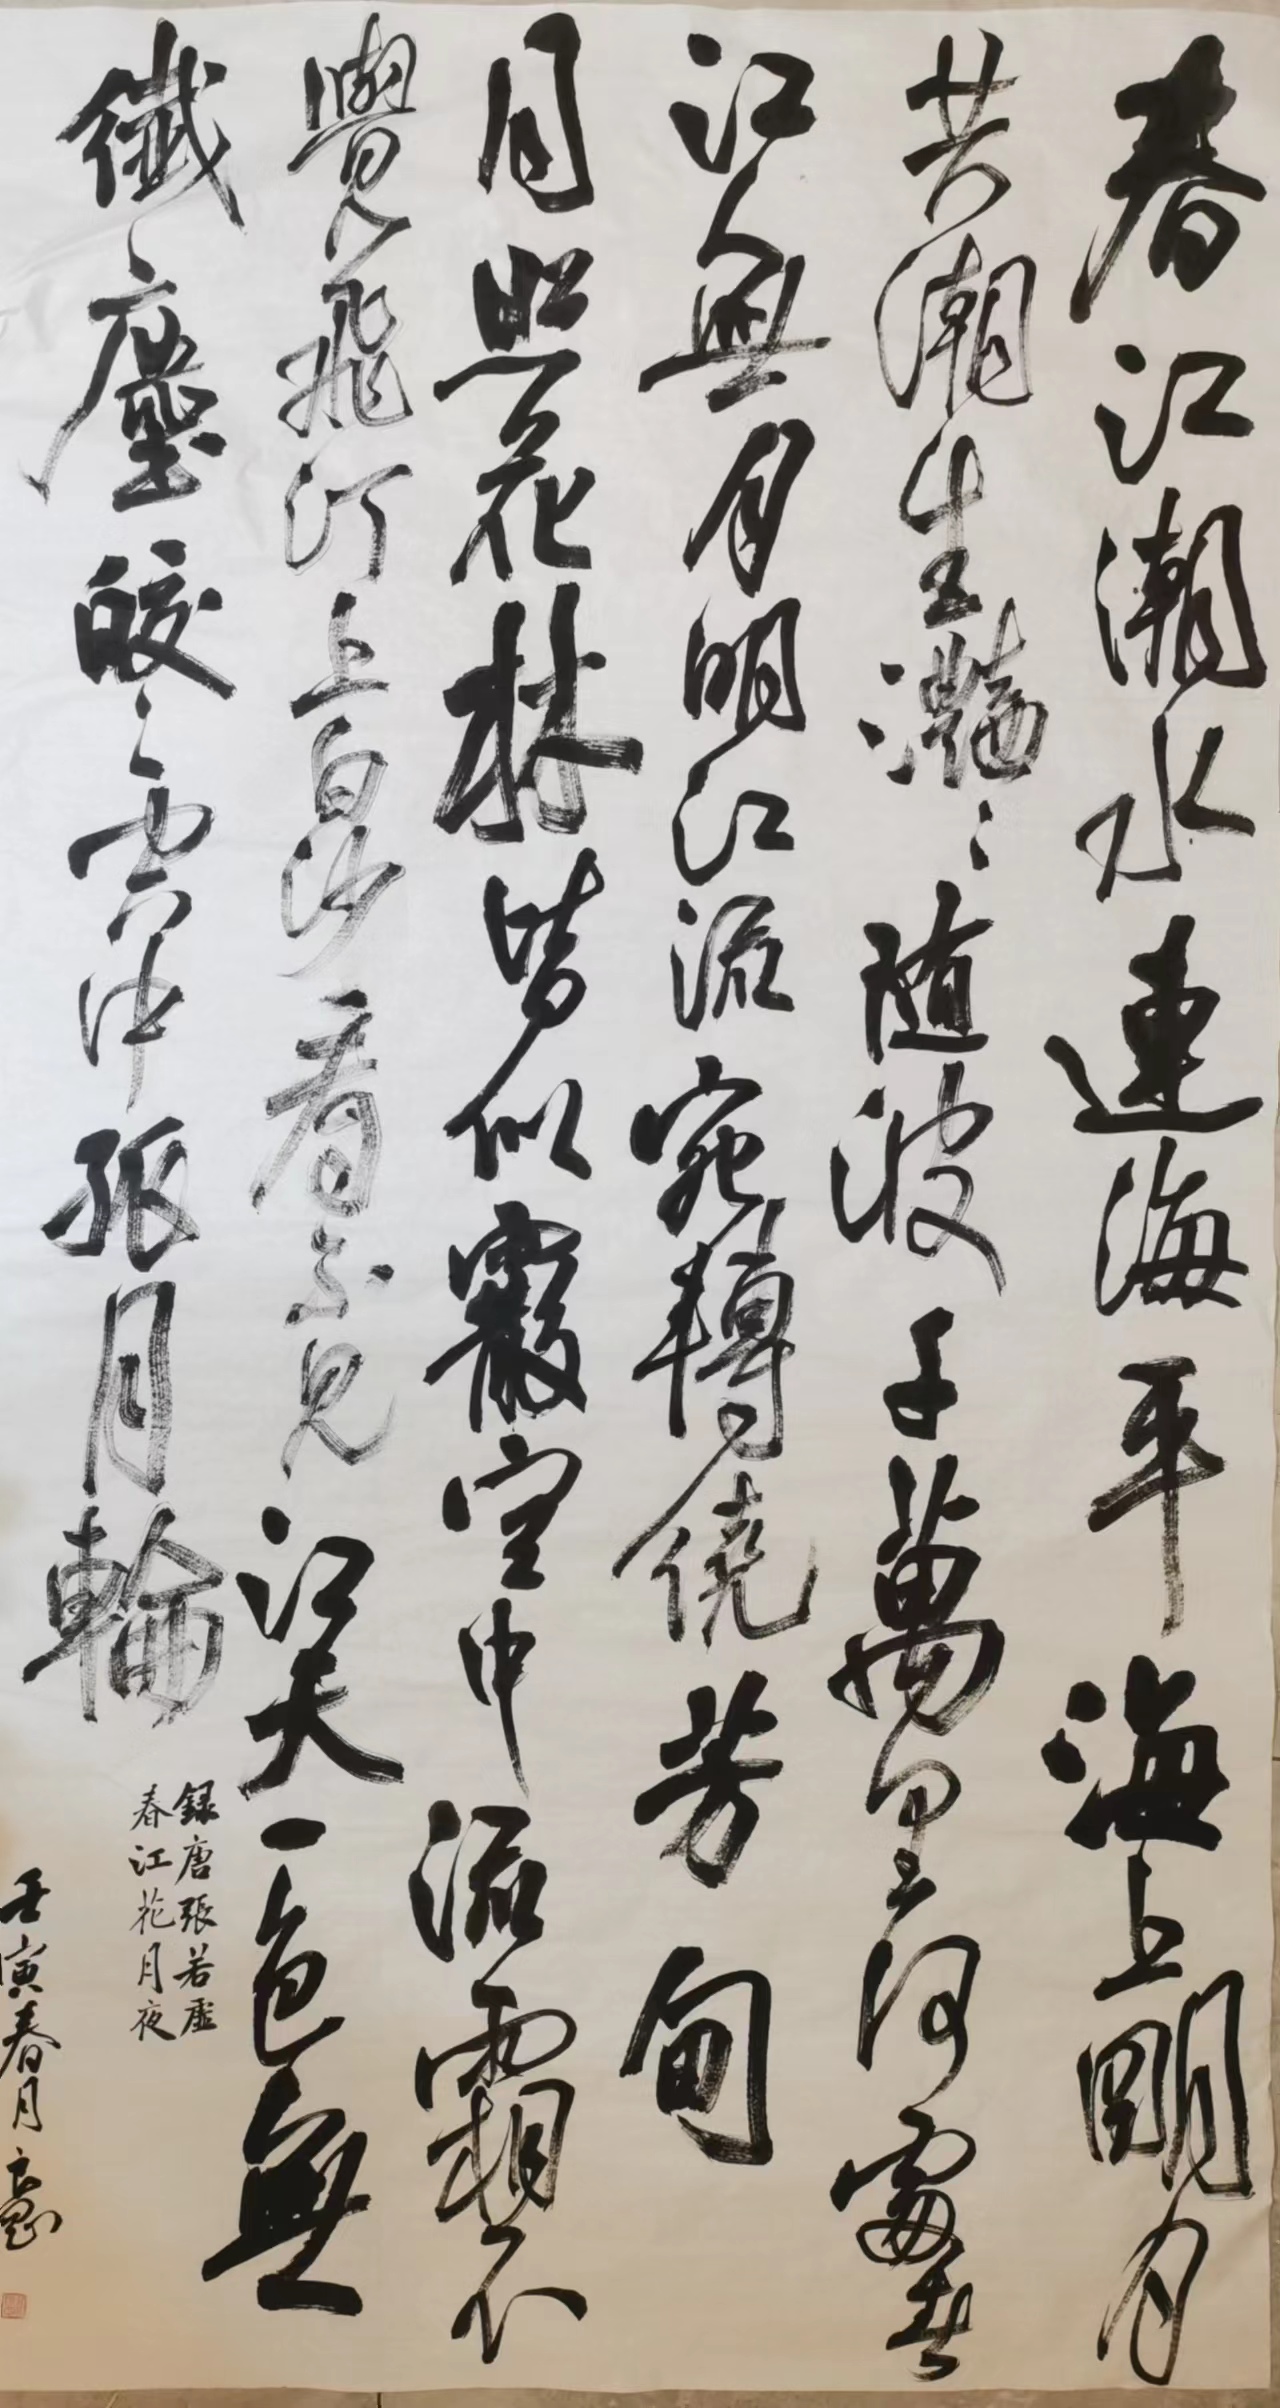 春江潮水連海平海上明月
共潮生灩〻随波千萬里何處春
江無月明江流宛轉繞芳甸
月照花林皆似霰空中流霜不
覺飛汀上白沙看不見江天一色無
纖塵皎〻空中孤月輪
録唐張若虛
春江花月夜
壬寅春月